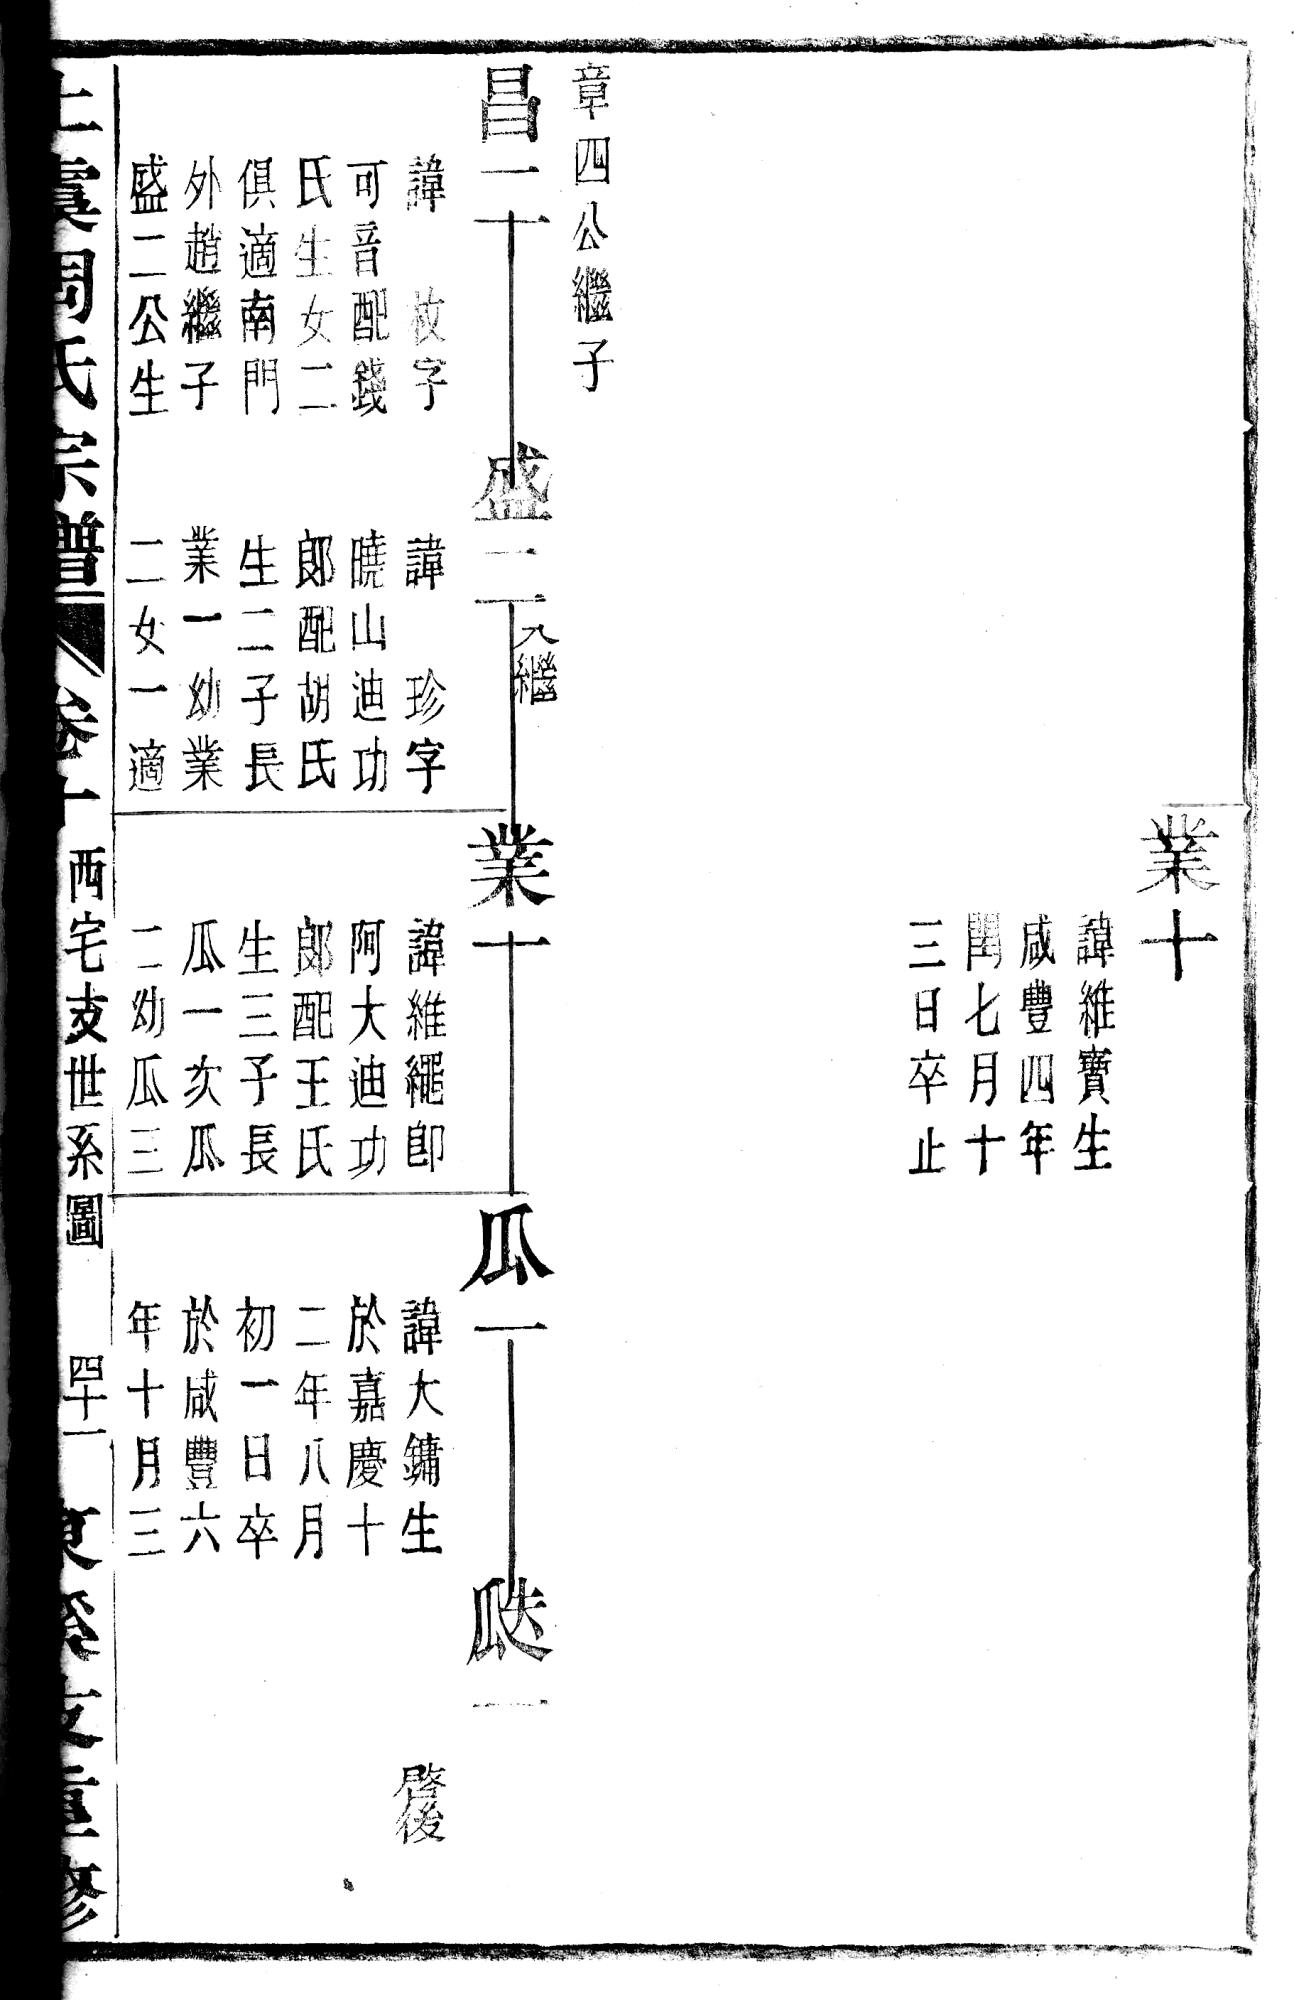 業十
諱維寳生
咸豐四年
閏七月十
三日卒止
章四公繼子
昌二
諱 枚字
可音配錢
氏生女二
俱適南門
外趙繼子
盛二公生
盛二入繼
諱 珍字
曉山迪功
郎配胡氏
生二子長
業一幼業
二女一適
業一
諱維繩即
阿大迪功
郎配王氏
生三子長
瓜一次瓜
二幼瓜三
瓜一
諱大鏞生
於嘉慶十
二年八月
初一日卒
於咸豐六
年十月三
瓞一
啓後
上虞周氏宗譜 卷十 西宅支世系圖 四十一 重修